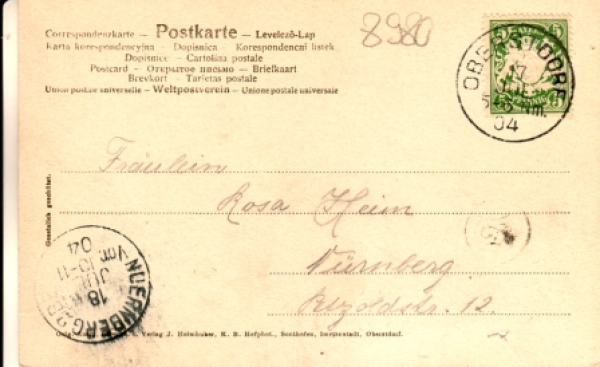 8980
Correspondenzkarte — Postkarte — Levelező-Lap
Karta korespondencyjna — Dopisnica — Korespondencni listek
Dopisnice — Cartolina postale
Postcard — Открытое письмо — Briefkaart
Brevkort — Tarjetas postale
Union postale universelle — Weltpostverein — Unione postale universale
OBERSTDORF
17
JUL
5-6 Nm.
04
Fräulein
Rosa Heim
Nürnberg
12.
Gesetzlich geschützt.
NUERNBERG 2
18
JUL
Vor. 10-11
04
Verlag J. Heimhuber, K. B. Hofphot., Sonthofen, Immenstadt, Oberstdorf.